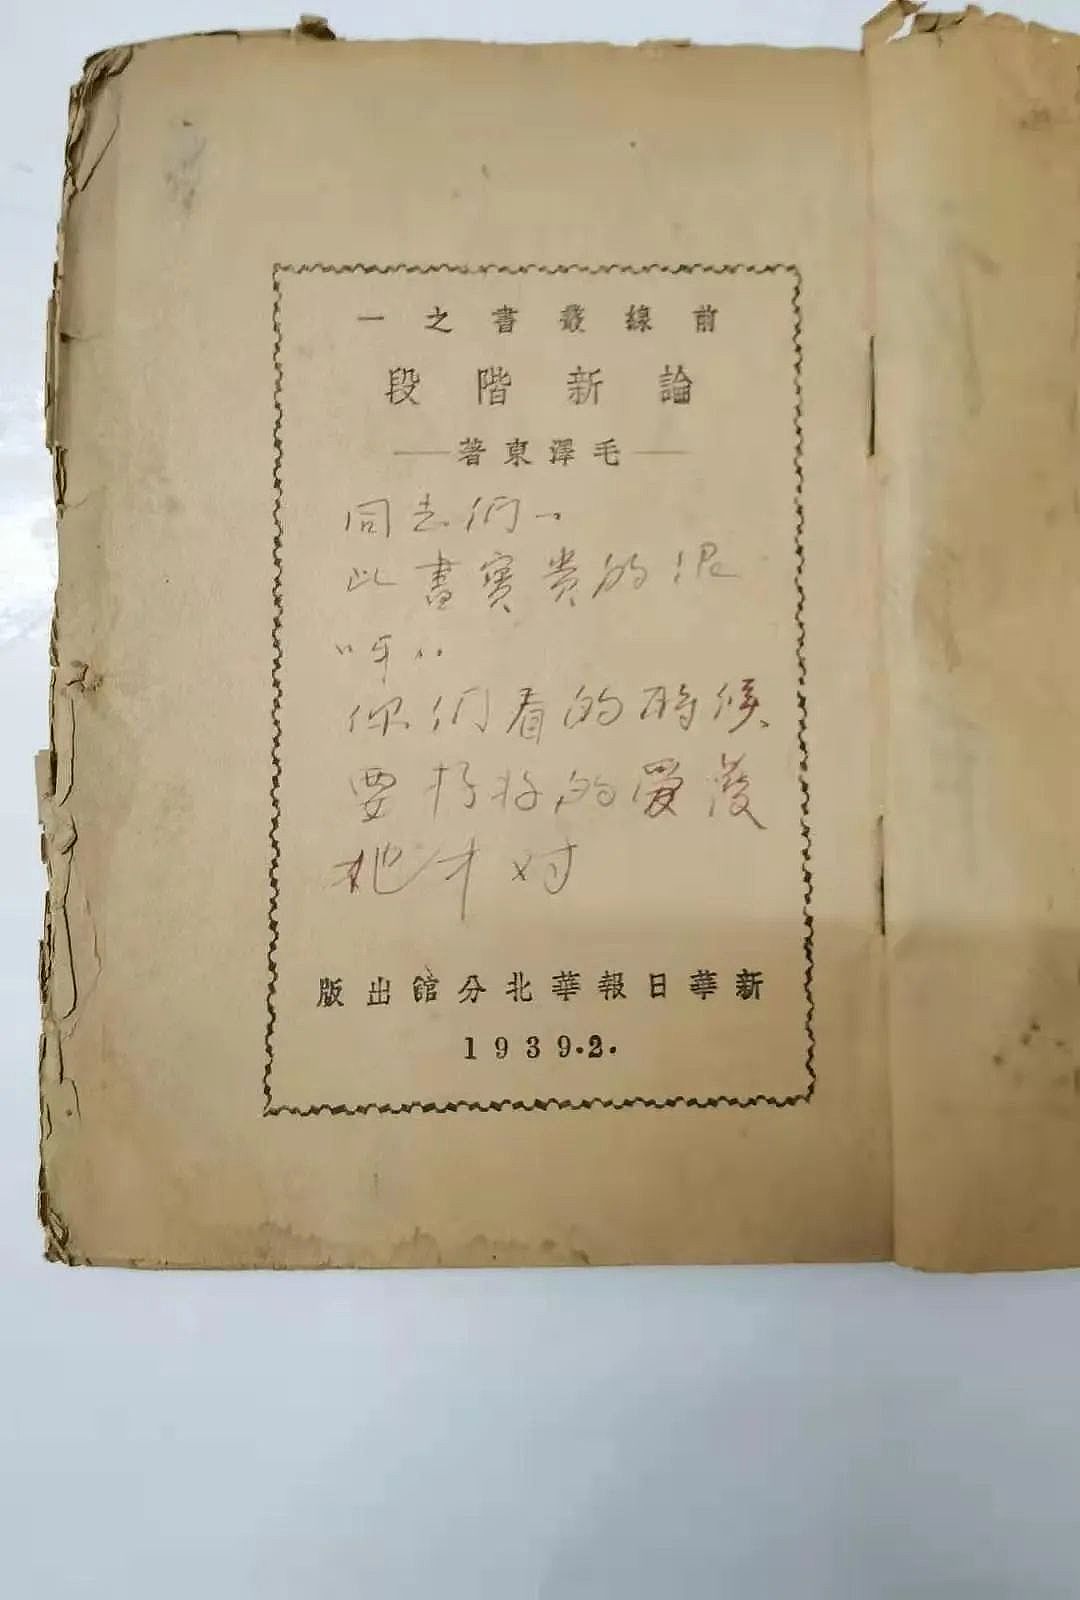 前線叢書之一
論新階段
——毛澤東著——
同志們..
此書寶貴的很
呀..
你們看的時候
要好好的愛護
她才对
新華日報華北分館出版
1939.2.